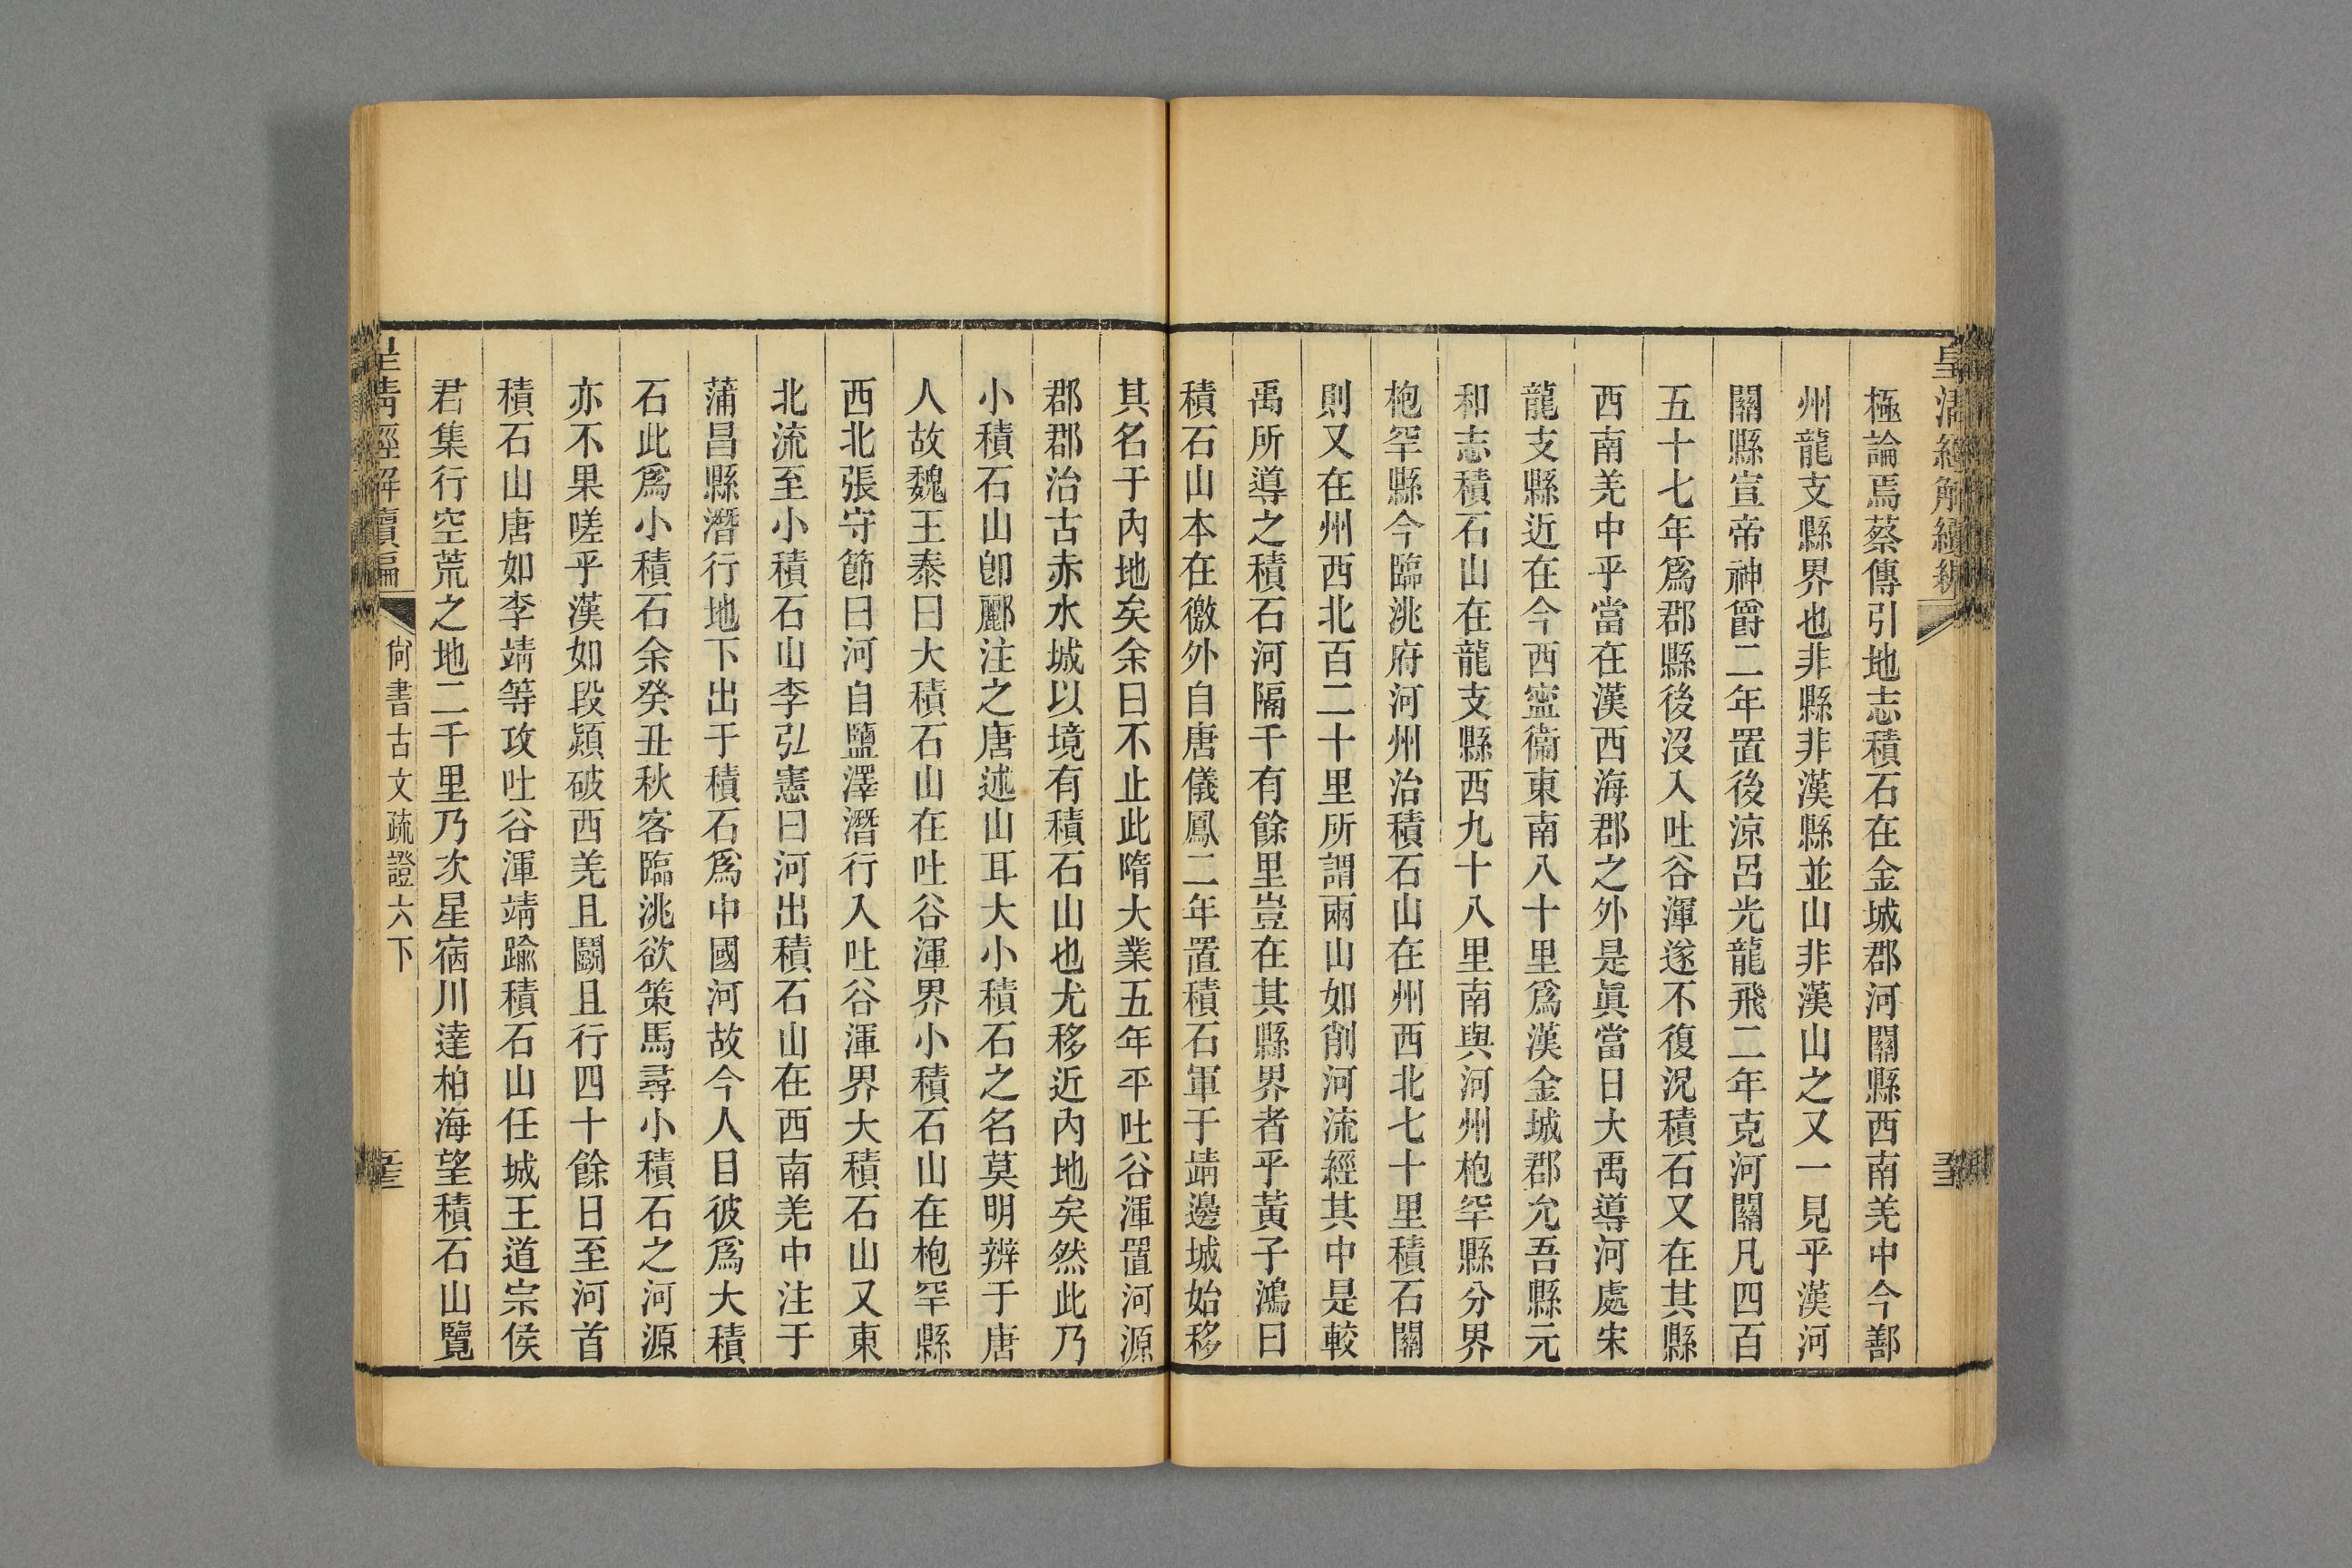 皇清經解續編
極論焉蔡傳引地志積石在金城郡河關縣西南羌中今鄯
州龍支縣界也非縣非漢縣並山非漢山之又一見乎漢河
關縣宣帝神爵二年置後涼呂光龍飛二年克河關凡四百
五十七年爲郡縣後沒入吐谷渾遂不復況積石又在其縣
西南羌中乎當在漢西海郡之外是眞當日大禹導河處宋
龍支縣近在今西寧衞東南八十里爲漢金城郡允吾縣元
和志積石山在龍支縣西九十八里南與河州枹罕縣分界
枹罕縣今臨洮府河州治積石山在州西北七十里積石關
則又在州西北百二十里所謂兩山如削河流經其中是較
禹所導之積石河隔千有餘里豈在其縣界者乎黃子鴻曰
積石山本在徼外自唐儀鳳二年置積石軍于靖邊城始移
其名于內地矣余曰不止此隋大業五年平吐谷渾置河源
郡郡治古赤水城以境有積石山也尤移近內地矣然此乃
小積石山卽酈注之唐述山耳大小積石之名莫明辨于唐
人故魏王泰曰大積石山在吐谷渾界小積石山在枹罕縣
西北張守節曰河自鹽澤潛行入吐谷渾界大積石山又東
北流至小積石山李弘憲曰河出積石山在西南羌中注于
蒲昌縣潛行地下出于積石爲中國河故今人目彼爲大積
石此爲小積石余癸丑秋客臨洮欲策馬尋小積石之河源
亦不果嗟乎漢如段熲破西羌且鬭且行四十餘日至河首
積石山唐如李靖等攻吐谷渾靖踰積石山任城王道宗侯
君集行空荒之地二千里乃次星宿川達柏海望積石山覽
皇清經解續編
尙書古文疏證六下